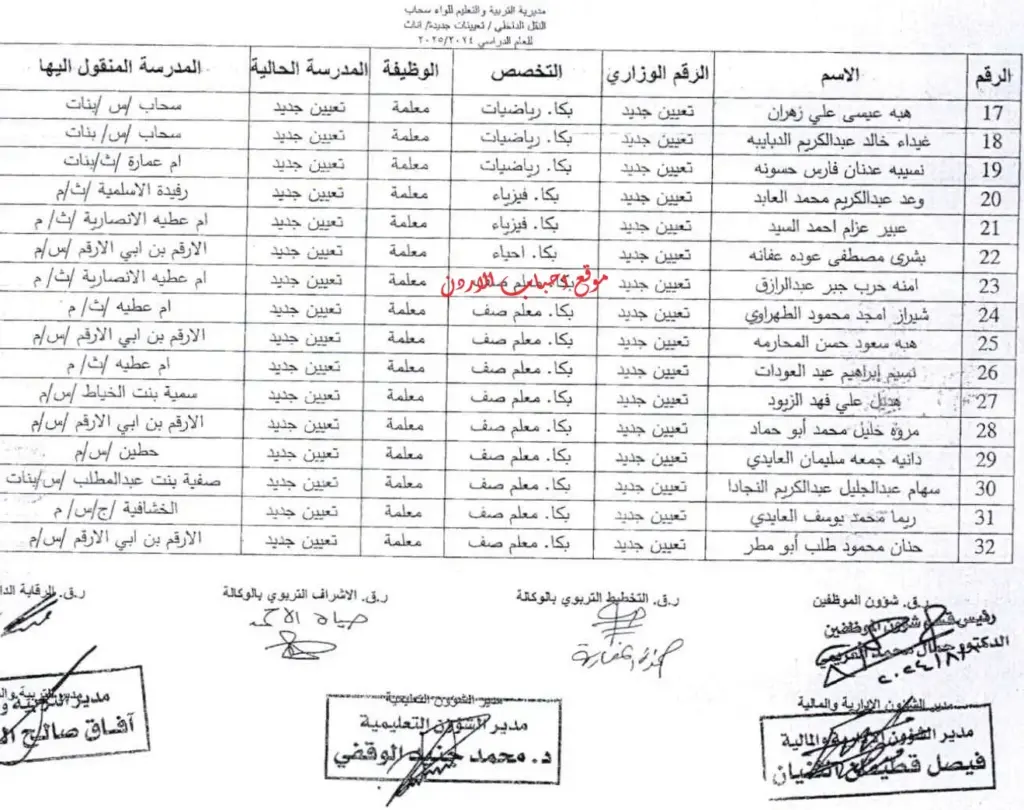 مديرية التربية والتعليم للواء سحاب
النقل الداخلي / تعيينات جديدة/ اناث
للعام الدراسي ٢٠٢٥/٢٠٢٤
الرقم الاسم الرقم الوزاري التخصص الوظيفة المدرسة الحالية المدرسة المنقول اليها
17 هبه عيسى علي زهران تعيين جديد بكا. رياضيات معلمة تعيين جديد سحاب /س /بنات
18 غيداء خالد عبدالكريم الدبايبه تعيين جديد بكا. رياضيات معلمة تعيين جديد سحاب /س/ بنات
19 نسيبه عدنان فارس حسونه تعيين جديد بكا. رياضيات معلمة تعيين جديد ام عمارة /ث/بنات
20 وعد عبدالكريم محمد العابد تعيين جديد بكا. فيزياء معلمة تعيين جديد رفيدة الاسلمية /ث/م
21 عبير عزام احمد السيد تعيين جديد بكا. فيزياء معلمة تعيين جديد ام عطيه الانصارية /ث/ م
22 بشرى مصطفى عوده عفانه تعيين جديد بكا. احياء معلمة تعيين جديد الارقم بن ابي الارقم /س/م
23 امنه حرب جبر عبدالرازق تعيين جديد بكا. معلم صف معلمة تعيين جديد ام عطيه الانصارية /ث/ م
موقع احباب الاردن
24 شيراز امجد محمود الطهراوي تعيين جديد بكا. معلم صف معلمة تعيين جديد ام عطيه /ث/ م
25 هبه سعود حسن المحارمه تعيين جديد بكا. معلم صف معلمة تعيين جديد الارقم بن ابي الارقم /س/م
26 نسيم إبراهيم عيد العودات تعيين جديد بكا. معلم صف معلمة تعيين جديد ام عطيه /ث/ م
27 هديل علي فهد الزيود تعيين جديد بكا. معلم صف معلمة تعيين جديد سمية بنت الخياط /س/م
28 مروة خليل محمد أبو حماد تعيين جديد بكا. معلم صف معلمة تعيين جديد الارقم بن ابي الارقم /س/م
29 دانيه جمعه سليمان العايدي تعيين جديد بكا. معلم صف معلمة تعيين جديد حطين /س/م
30 سهام عبدالجليل عبدالكريم النجادا تعيين جديد بكا. معلم صف معلمة تعيين جديد صفية بنت عبدالمطلب /س/بنات
31 ريما محمد يوسف العايدي تعيين جديد بكا. معلم صف معلمة تعيين جديد الخشافية /ج/س/ م
32 حنان محمود طلب أبو مطر تعيين جديد بكا. معلم صف معلمة تعيين جديد الارقم بن ابي الارقم /س/م
ر.ق. شؤون الموظفين ر.ق. التخطيط التربوي بالوكالة ر.ق. الاشراف التربوي بالوكالة ر.ق. الرقابة الدا
رئيس قسم شؤون الموظفين
الدكتور جمال محمد
مدير الشؤون الإدارية والمالية مدير الشؤون التعليمية مدير التربية وال
مدير الشؤون الإدارية والمالية مدير الشؤون التعليمية مدير التربية و
فيصل د. محمد جنيد الوقفي آفاق صالح